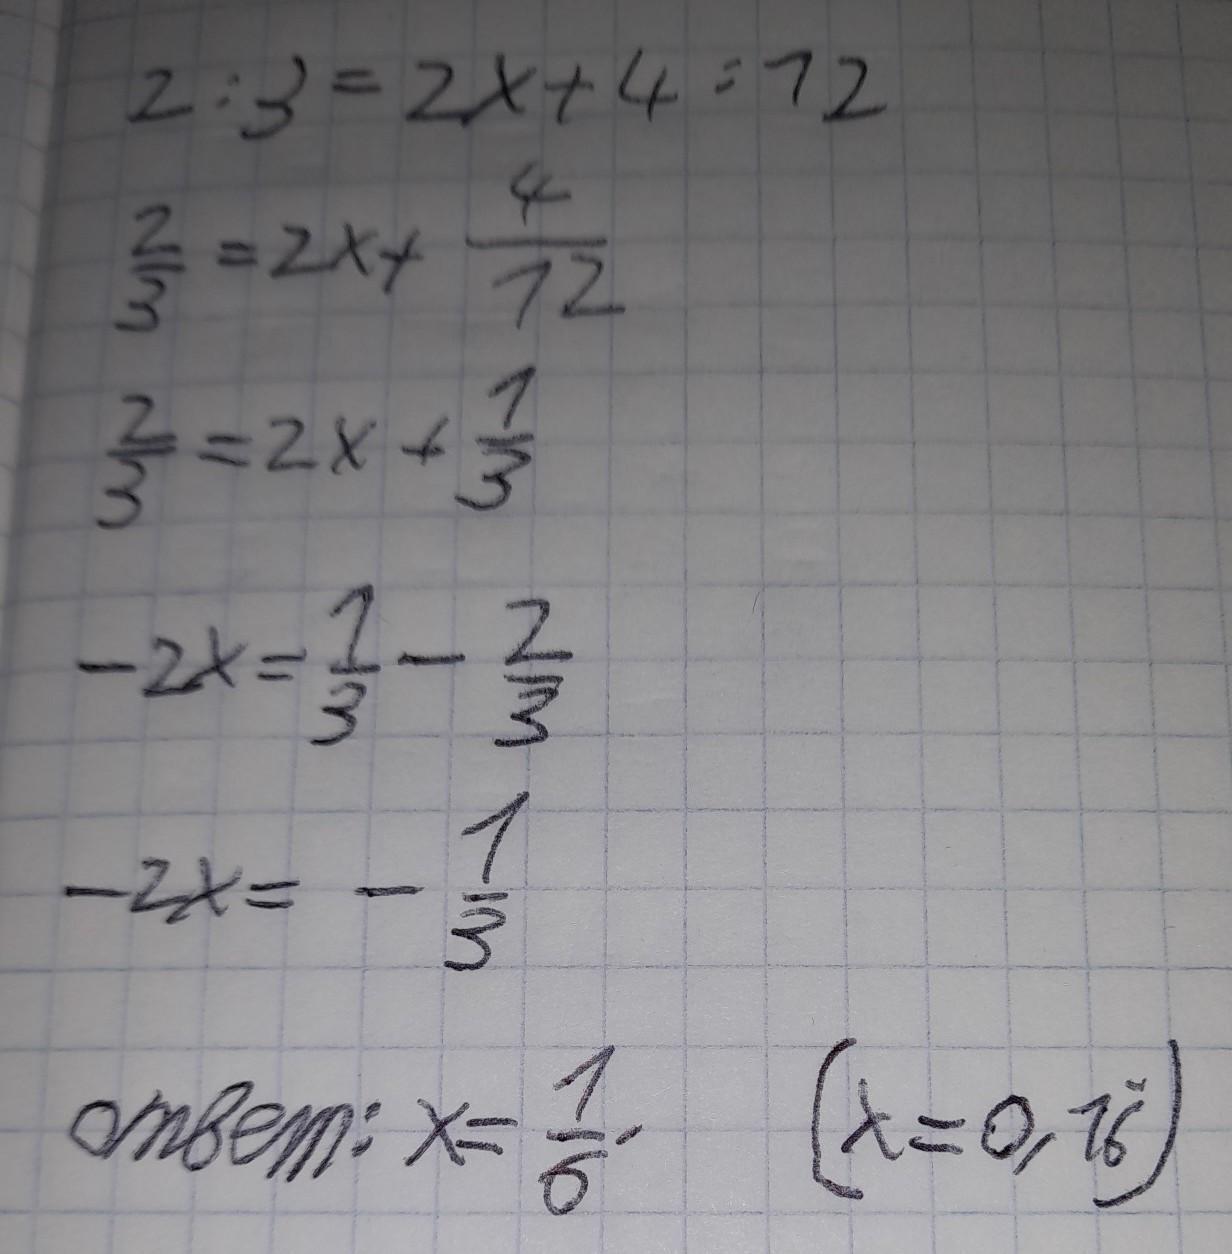 2:3=2x+4:12
2/3=2x+4/12
2/3=2x+1/3
-2x=1/3-2/3
-2x=-1/3
ответ: x=1/6. (x=0,16̆)